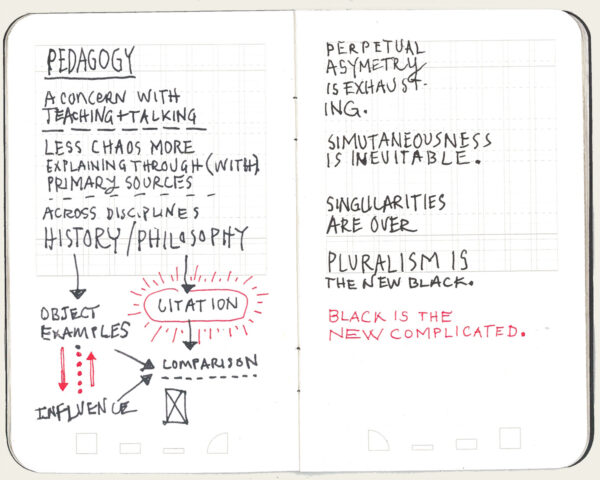 PEDAGOGY
A CONCERN WITH
TEACHING + TALKING
LESS CHAOS MORE
EXPLAINING THROUGH (WITH)
PRIMARY SOURCES
ACROSS DISCIPLINES
HISTORY / PHILOSOPHY
OBJECT
EXAMPLES
CITATION
COMPARISON
INFLUENCE
PERPETUAL
ASYMETRY
IS EXHAUST-
ING.
SIMUTANEOUSNESS
IS INEVITABLE.
SINGULARITIES
ARE OVER
PLURALISM IS
THE NEW BLACK.
BLACK IS THE
NEW COMPLICATED.